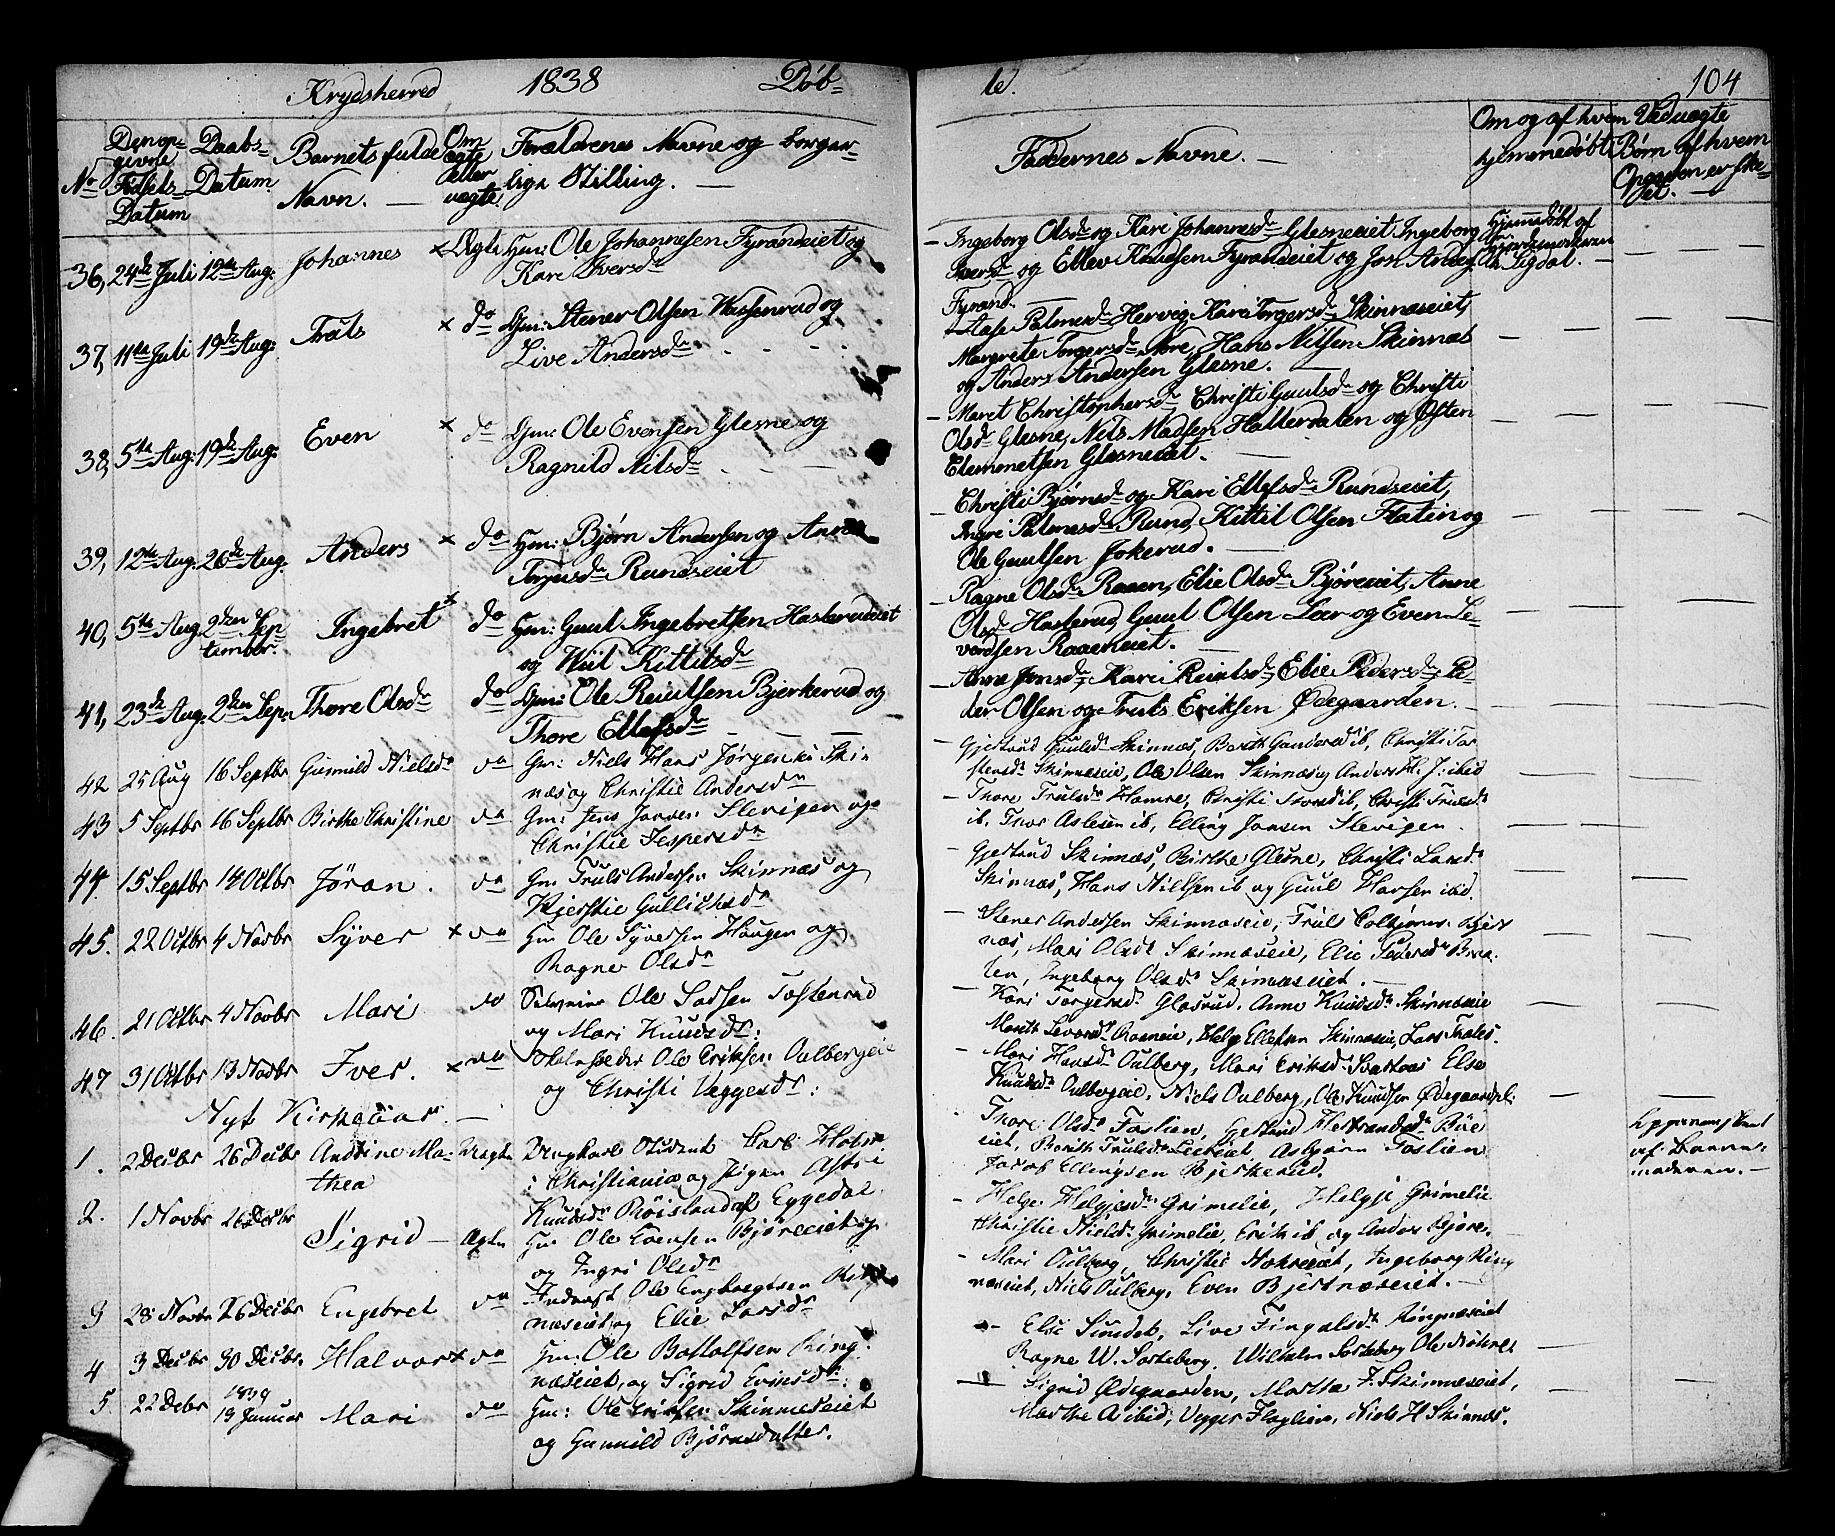 Krydsherred 1838 Døb-
te. 104
No
Den op-
givne
Fødsels-
Datum
Daabs-
Datum
Barnets fulde
Navn. —
Om
ægte
eller
uægte.
Forældrenes Navne og borger-
lige Stilling. —
Faddernes Navne. —
Om og af hvem
hjemmedøbt
Ved uægte
Børn af hvem
Opgaven er ske-
et. —
36, 24de Juli 12te Aug: Johannes × Ægte Gm: Ole Johannesen Fyrandeiet og
Kari Iversdr
— Ingeborg Olsdr og Kari Johannesdr Glesneeiet, Ingeborg
Iversdr og Ellev Knudsen Fyrandeiet og Jon
Fyrand. —
Hjemmedøbt af
Sigdal. —
37, 11te Juli 19de Aug: Truls × do Gm: Stener Olsen Wassenrud og
Live Andersdr
— Aase Palmesdr Hervig, Kari Torgersdr Skinnæseiet,
Margrete Torgersdr Nore, Hans Nilsen Skinnæs
og Anders Andersen Glesne. —
38, 5te Aug: 19de Aug: Even × do Gm: Ole Evensen Glesne og
Ragnild Nilsdr
— Maret Christophersdr, Christi Guulsdr og Christi
Olsdr Glesne, Nils Madsen Hallerdalen og Østen
Clemmetsen Glesneeiet. —
39, 12te Aug. 26de Aug. Anders × do Gm: Bjørn Andersen og Anne
Torjusdr Rundseiet
— Christi Bjørnsdr og Kari Ellefsdr Rundseiet,
Ingri Palmesdr Rund, Kittil Olsen Flatin og
Ole Guulsen Jokerud. —
40, 5te Aug 2den Sep-
tember. Ingebret × do Gm: Guul Ingebretsen Haslerudeiet
og Kittilsdr
— Ragne Olsdr Raaen, Elie Olsdr Bjøreeiet, Anne
Olsdr Haslerud, Guul Olsen Loer og Even Le-
vordsen Raaeneiet. —
41, 23de Aug: 2den Sep. Thore Olsdr do Gm: Ole Reiulsen Bjerkerud og
Thore Ellefsdr
— Anne Jonsdr, Kari Reiulsdr, Elie Pedersdr, Pe-
der Olsen og Truls Eriksen Ødegaarden. —
42 25 Aug 16 Septbr Gunnild Nielsdr do Gm: Niels Hans Jørgensen Skin
næs og Christie Andersdr
— Gjertrud Guulsdr Skinnæs, Berith Gundersd ib, Christi Tor
stensdr Skinnæseie, Ole Olsen Skinnæs og Anders H. J: ibid
43 5 Septbr 16 Septbr Birthe Christine do Gm: Jens Jonsen Slevigen og
Christie Jespersdr
— Thore Trulsdr Hamre, Christi ib, Christi Trulsdr
ib. Thor Aslesen ib, Elling Jonsen Slevigen.
44. 15 Septbr 14 Octbr Jøran. do Gm Truls Andersen Skinnæs og
Kjerstie Gullichsdr
— Gjertrud Skinnæs, Birthe Glesne, Christi Larsdr
Skinnæs, Hans Nielsen ib og Guul Hansen ibid.
45. 22 Octbr 4 Novbr Syver × do Gm Ole Syversen Haugen og
Ragne Olsdr
— Stener Andersen Skinnæseie, Truls
næs, Mari Olsdr Skinnæseie, Elie Pedersdr
ten, Ingeborg Olsdr Skinnæseiet. —
46. 21 Octbr 4 Novbr Mari do Ole Larsen Tostenrud
og Mari Knudsdr:
— Kari Torgersdr Glesrud, Anne Knudsdr Skinnæseie
Marith Levorsdr Raaeneie, Helge Ellefsen Skinnæseie, Lars
47 31 Octbr 13 Novbr Iver. × do Ole Eriksen Oulbergeie
og Christi Veggersdr:
— Mari Hansdr Oulberg, Mari Eriksdr Else
Knudsdr Oulbergeie, Niels Oulberg, Ole Knudsen
Nyt Kirkeaar. —
1. 2 Decbr 26 Decbr Andrine Ma-
thea Uægte Ungkarl Student Carl Holm
i Christiania og Pigen Astri
Knudsdr Røisland af Eggedal
— Thore Olsdr Foslien, Gjertrud Herbrandsdr
eiet, Berith Trulsdr Lieeiet, Asbjørn Foslien
Jacob Ellingsen Bjerkerud.
af Barne-
moderen. —
2. 1 Novbr 26 Decbr Sigrid — Ægte Gm Ole Evensen Bjøreeiet
og Ingri Olsdr
— Helge Helgesdr Grimelie, Helge Grimelie
Christie Nielsdr Grimelie, Erik ib og Anders Bjøre.
3 28 Novbr 26 Decbr Engebret do Inderst Ole Engebregtsen
næseiet og Elie Larsdr
— Mari Oulberg, Christie Ingeborg Ring
næseiet, Niels Oulberg, Even Bjertnæseiet. —
4 3 Decbr 30 Decbr. Halvor × do Gm: Ole Bottolfsen Ring-
næseiet, og Sigrid Evensdr:
— Else Sundet, Live Fingalsdr Ringnæseiet
Ragne W. Sorteberg, Wilhelm Sorteberg Ole
5 22 Decbr 1839
13 Januar Mari do Gm: Ole Eriksen Skinnæseiet
og Gunnild Bjørnsdatter.
— Sigrid Ødegaarden, Marthe J. Skinnæseiet,
Marthe A ibid, Vegger Flaglien, Niels H Skinnæs.